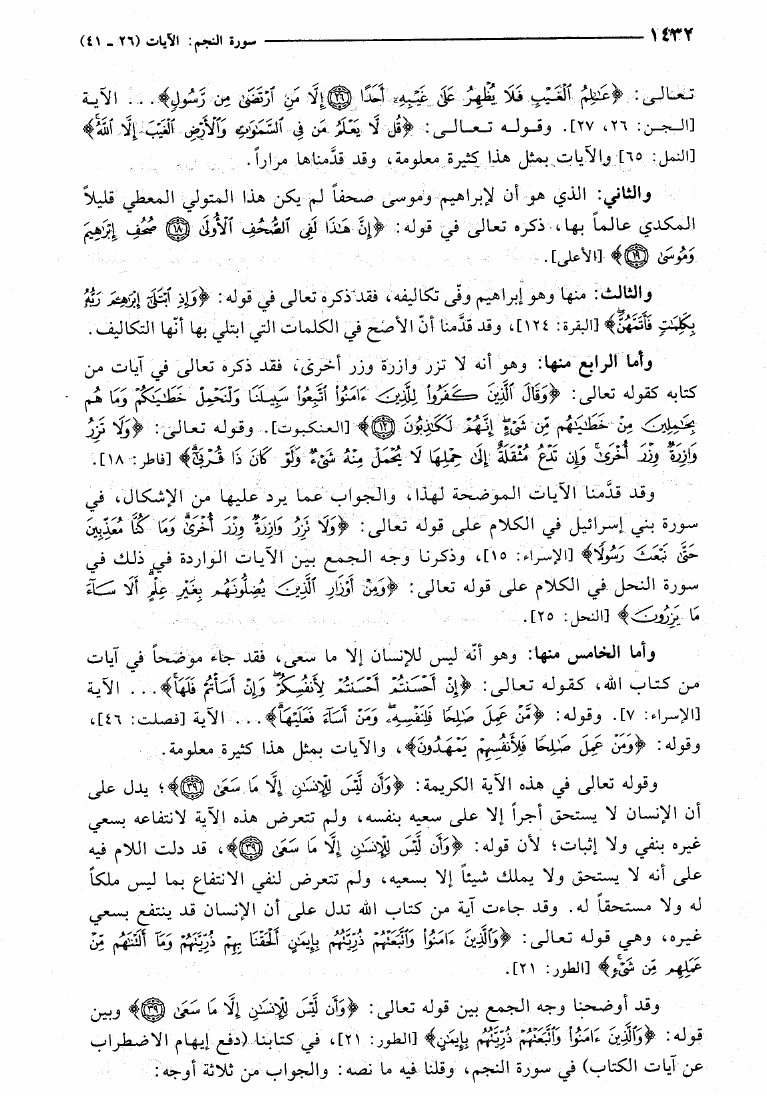 ١٤٣٢ سورة النجم: الآيات (٢٦ - ٤١)
تعالى: ﴿عَٰلِمُ ٱلْغَيْبِ فَلَا يُظْهِرُ عَلَىٰ غَيْبِهِۦٓ أَحَدًا ۝٢٦ إِلَّا مَنِ ٱرْتَضَىٰ مِن رَّسُولٍ﴾... الآية
[الجن: ٢٦، ٢٧]. وقوله تعالى: ﴿قُل لَّا يَعْلَمُ مَن فِي ٱلسَّمَٰوَٰتِ وَٱلْأَرْضِ ٱلْغَيْبَ إِلَّا ٱللَّهُ﴾
[النمل: ٦٥] والآيات بمثل هذا كثيرة معلومة، وقد قدَّمناها مراراً.
والثاني: الذي هو أن لإبراهيم وموسى صحفاً لم يكن هذا المتولي المعطي قليلاً
المكدي عالماً بها، ذكره تعالى في قوله: ﴿إِنَّ هَٰذَا لَفِي ٱلصُّحُفِ ٱلْأُولَىٰ ۝١٨ صُحُفِ إِبْرَٰهِيمَ
وَمُوسَىٰ ۝١٩﴾ [الأعلى].
والثالث: منها وهو إبراهيم وفّى تكاليفه، فقد ذكره تعالى في قوله: ﴿وَإِذِ ٱبْتَلَىٰٓ إِبْرَٰهِـۧمَ رَبُّهُۥ
بِكَلِمَٰتٍ فَأَتَمَّهُنَّ﴾ [البقرة: ١٢٤]، وقد قدَّمنا أنّ الأصح في الكلمات التي ابتلي بها أنّها التكاليف.
وأما الرابع منها: وهو أنه لا تزر وازرة وزر أخرى، فقد ذكره تعالى في آيات من
كتابه كقوله تعالى: ﴿وَقَالَ ٱلَّذِينَ كَفَرُواْ لِلَّذِينَ ءَامَنُواْ ٱتَّبِعُواْ سَبِيلَنَا وَلْنَحْمِلْ خَطَٰيَٰكُمْ وَمَا هُم
بِحَٰمِلِينَ مِنْ خَطَٰيَٰهُم مِّن شَيْءٍ إِنَّهُمْ لَكَٰذِبُونَ ۝١٢﴾ [العنكبوت]. وقوله تعالى: ﴿وَلَا تَزِرُ
وَازِرَةٌ وِزْرَ أُخْرَىٰ وَإِن تَدْعُ مُثْقَلَةٌ إِلَىٰ حِمْلِهَا لَا يُحْمَلْ مِنْهُ شَيْءٌ وَلَوْ كَانَ ذَا قُرْبَىٰٓ﴾ [فاطر: ١٨].
وقد قدَّمنا الآيات الموضحة لهذا، والجواب عما يرد عليها من الإشكال، في
سورة بني إسرائيل في الكلام على قوله تعالى: ﴿وَلَا تَزِرُ وَازِرَةٌ وِزْرَ أُخْرَىٰ وَمَا كُنَّا مُعَذِّبِينَ
حَتَّىٰ نَبْعَثَ رَسُولًا﴾ [الإسراء: ١٥]، وذكرنا وجه الجمع بين الآيات الواردة في ذلك في
سورة النحل في الكلام على قوله تعالى: ﴿وَمِنْ أَوْزَارِ ٱلَّذِينَ يُضِلُّونَهُم بِغَيْرِ عِلْمٍ أَلَا سَآءَ
مَا يَزِرُونَ﴾ [النحل: ٢٥].
وأما الخامس منها: وهو أنّه ليس للإنسان إلا ما سعى، فقد جاء موضحاً في آيات
من كتاب الله، كقوله تعالى: ﴿إِنْ أَحْسَنتُمْ أَحْسَنتُمْ لِأَنفُسِكُمْ وَإِنْ أَسَأْتُمْ فَلَهَا﴾... الآية
[الإسراء: ٧]. وقوله: ﴿مَّنْ عَمِلَ صَٰلِحًا فَلِنَفْسِهِۦ وَمَنْ أَسَآءَ فَعَلَيْهَا﴾... الآية [فصلت: ٤٦]،
وقوله: ﴿وَمَنْ عَمِلَ صَٰلِحًا فَلِأَنفُسِهِمْ يَمْهَدُونَ﴾، والآيات بمثل هذا كثيرة معلومة.
وقوله تعالى في هذه الآية الكريمة: ﴿وَأَن لَّيْسَ لِلْإِنسَٰنِ إِلَّا مَا سَعَىٰ ۝٣٩﴾؛ يدل على
أن الإنسان لا يستحق أجراً إلا على سعيه بنفسه، ولم تتعرض هذه الآية لانتفاعه بسعي
غيره بنفي ولا إثبات؛ لأن قوله: ﴿وَأَن لَّيْسَ لِلْإِنسَٰنِ إِلَّا مَا سَعَىٰ ۝٣٩﴾، قد دلت اللام فيه
على أنه لا يستحق ولا يملك شيئاً إلا بسعيه، ولم تتعرض لنفي الانتفاع بما ليس ملكاً
له ولا مستحقاً له. وقد جاءت آية من كتاب الله تدل على أن الإنسان قد ينتفع بسعي
غيره، وهي قوله تعالى: ﴿وَٱلَّذِينَ ءَامَنُواْ وَٱتَّبَعَتْهُمْ ذُرِّيَّتُهُم بِإِيمَٰنٍ أَلْحَقْنَا بِهِمْ ذُرِّيَّتَهُمْ وَمَآ أَلَتْنَٰهُم مِّنْ
عَمَلِهِم مِّن شَيْءٍ﴾ [الطور: ٢١].
وقد أوضحنا وجه الجمع بين قوله تعالى: ﴿وَأَن لَّيْسَ لِلْإِنسَٰنِ إِلَّا مَا سَعَىٰ ۝٣٩﴾ وبين
قوله: ﴿وَٱلَّذِينَ ءَامَنُواْ وَٱتَّبَعَتْهُمْ ذُرِّيَّتُهُم بِإِيمَٰنٍ﴾ [الطور: ٢١]، في كتابنا (دفع إيهام الاضطراب
عن آيات الكتاب) في سورة النجم، وقلنا فيه ما نصه: والجواب من ثلاثة أوجه: